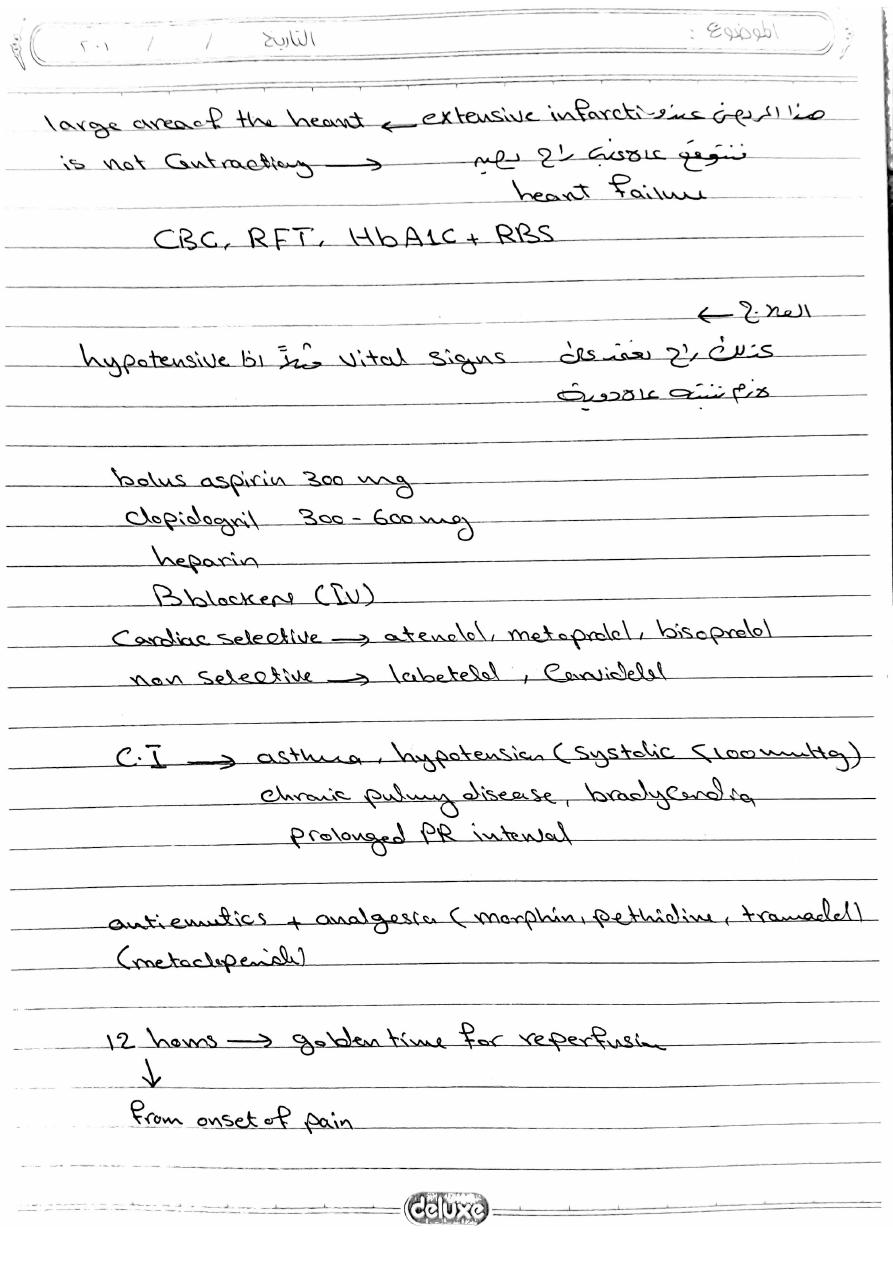 الموضوع : التاريخ / / ٢٠١
هذا المريض عنده extensive infarcti ← large area of the heart
is not Contracting → نتوقع عادي راح يصير
heart failure
CBC, RFT, HbA1C + RBS
العلاج ←
كذلك راح يعتمد على vital signs مثلاً اذا hypotensive
لازم ننتبه عالادوية
bolus aspirin 300 mg
Clopidogril 300 - 600 mg
heparin
B blockers (IV)
Cardiac selective → atenolol, metoprolol, bisoprolol
non selective → labetelol, Carvidelol
C.I → asthma, hypotension (systolic <100 mmHg)
chronic pulmy disease, bradycardia
prolonged PR interval
antiemetics + analgesia (morphin, pethidine, tramadol)
(metaclopenide)
12 hours → golden time for reperfusion
↓
from onset of pain
deluxe